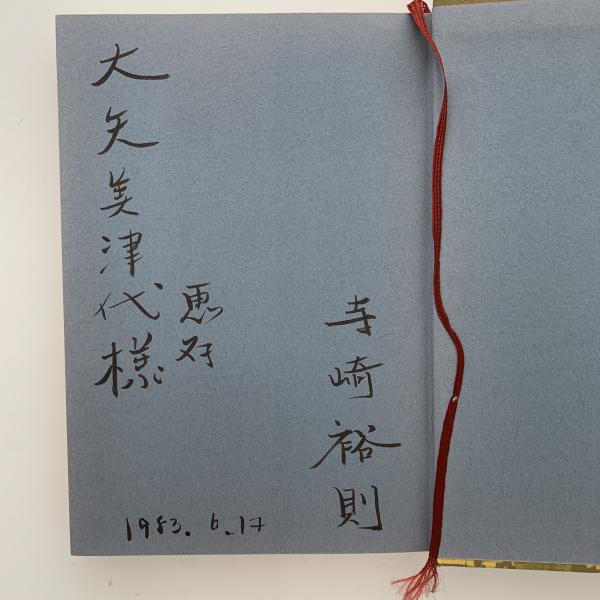 大矢美津代様
恵存
寺崎裕則
1983. 6. 17